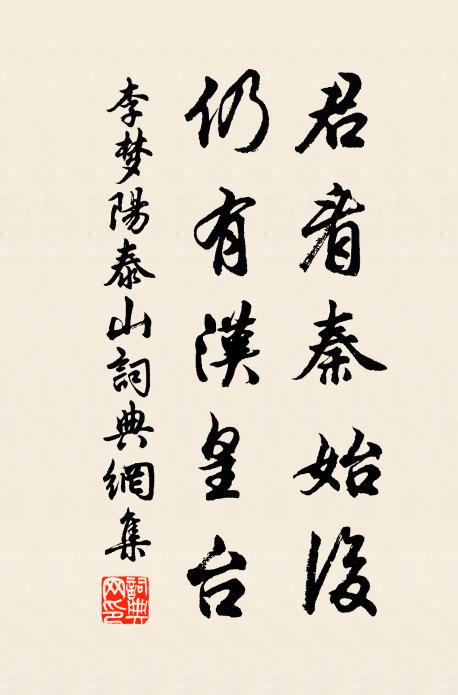 君看秦始後
仍有漢皇台
李梦陽泰山詞典網集
詞典網印